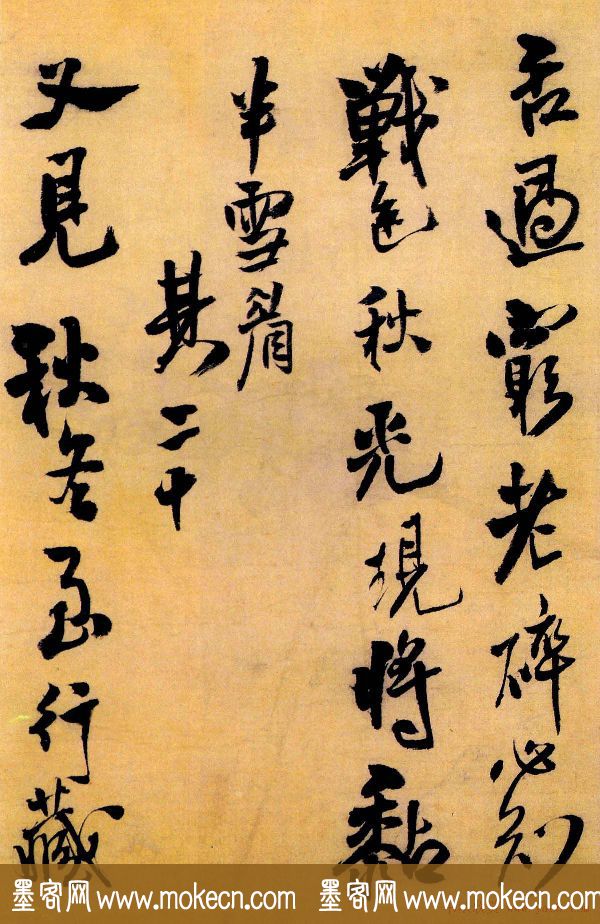 過窮老碎
戰色秋光現將黏
半雪
其二十
又見秋至行藏
墨客网 www.mokecn.com 墨客网 www.mokecn.com